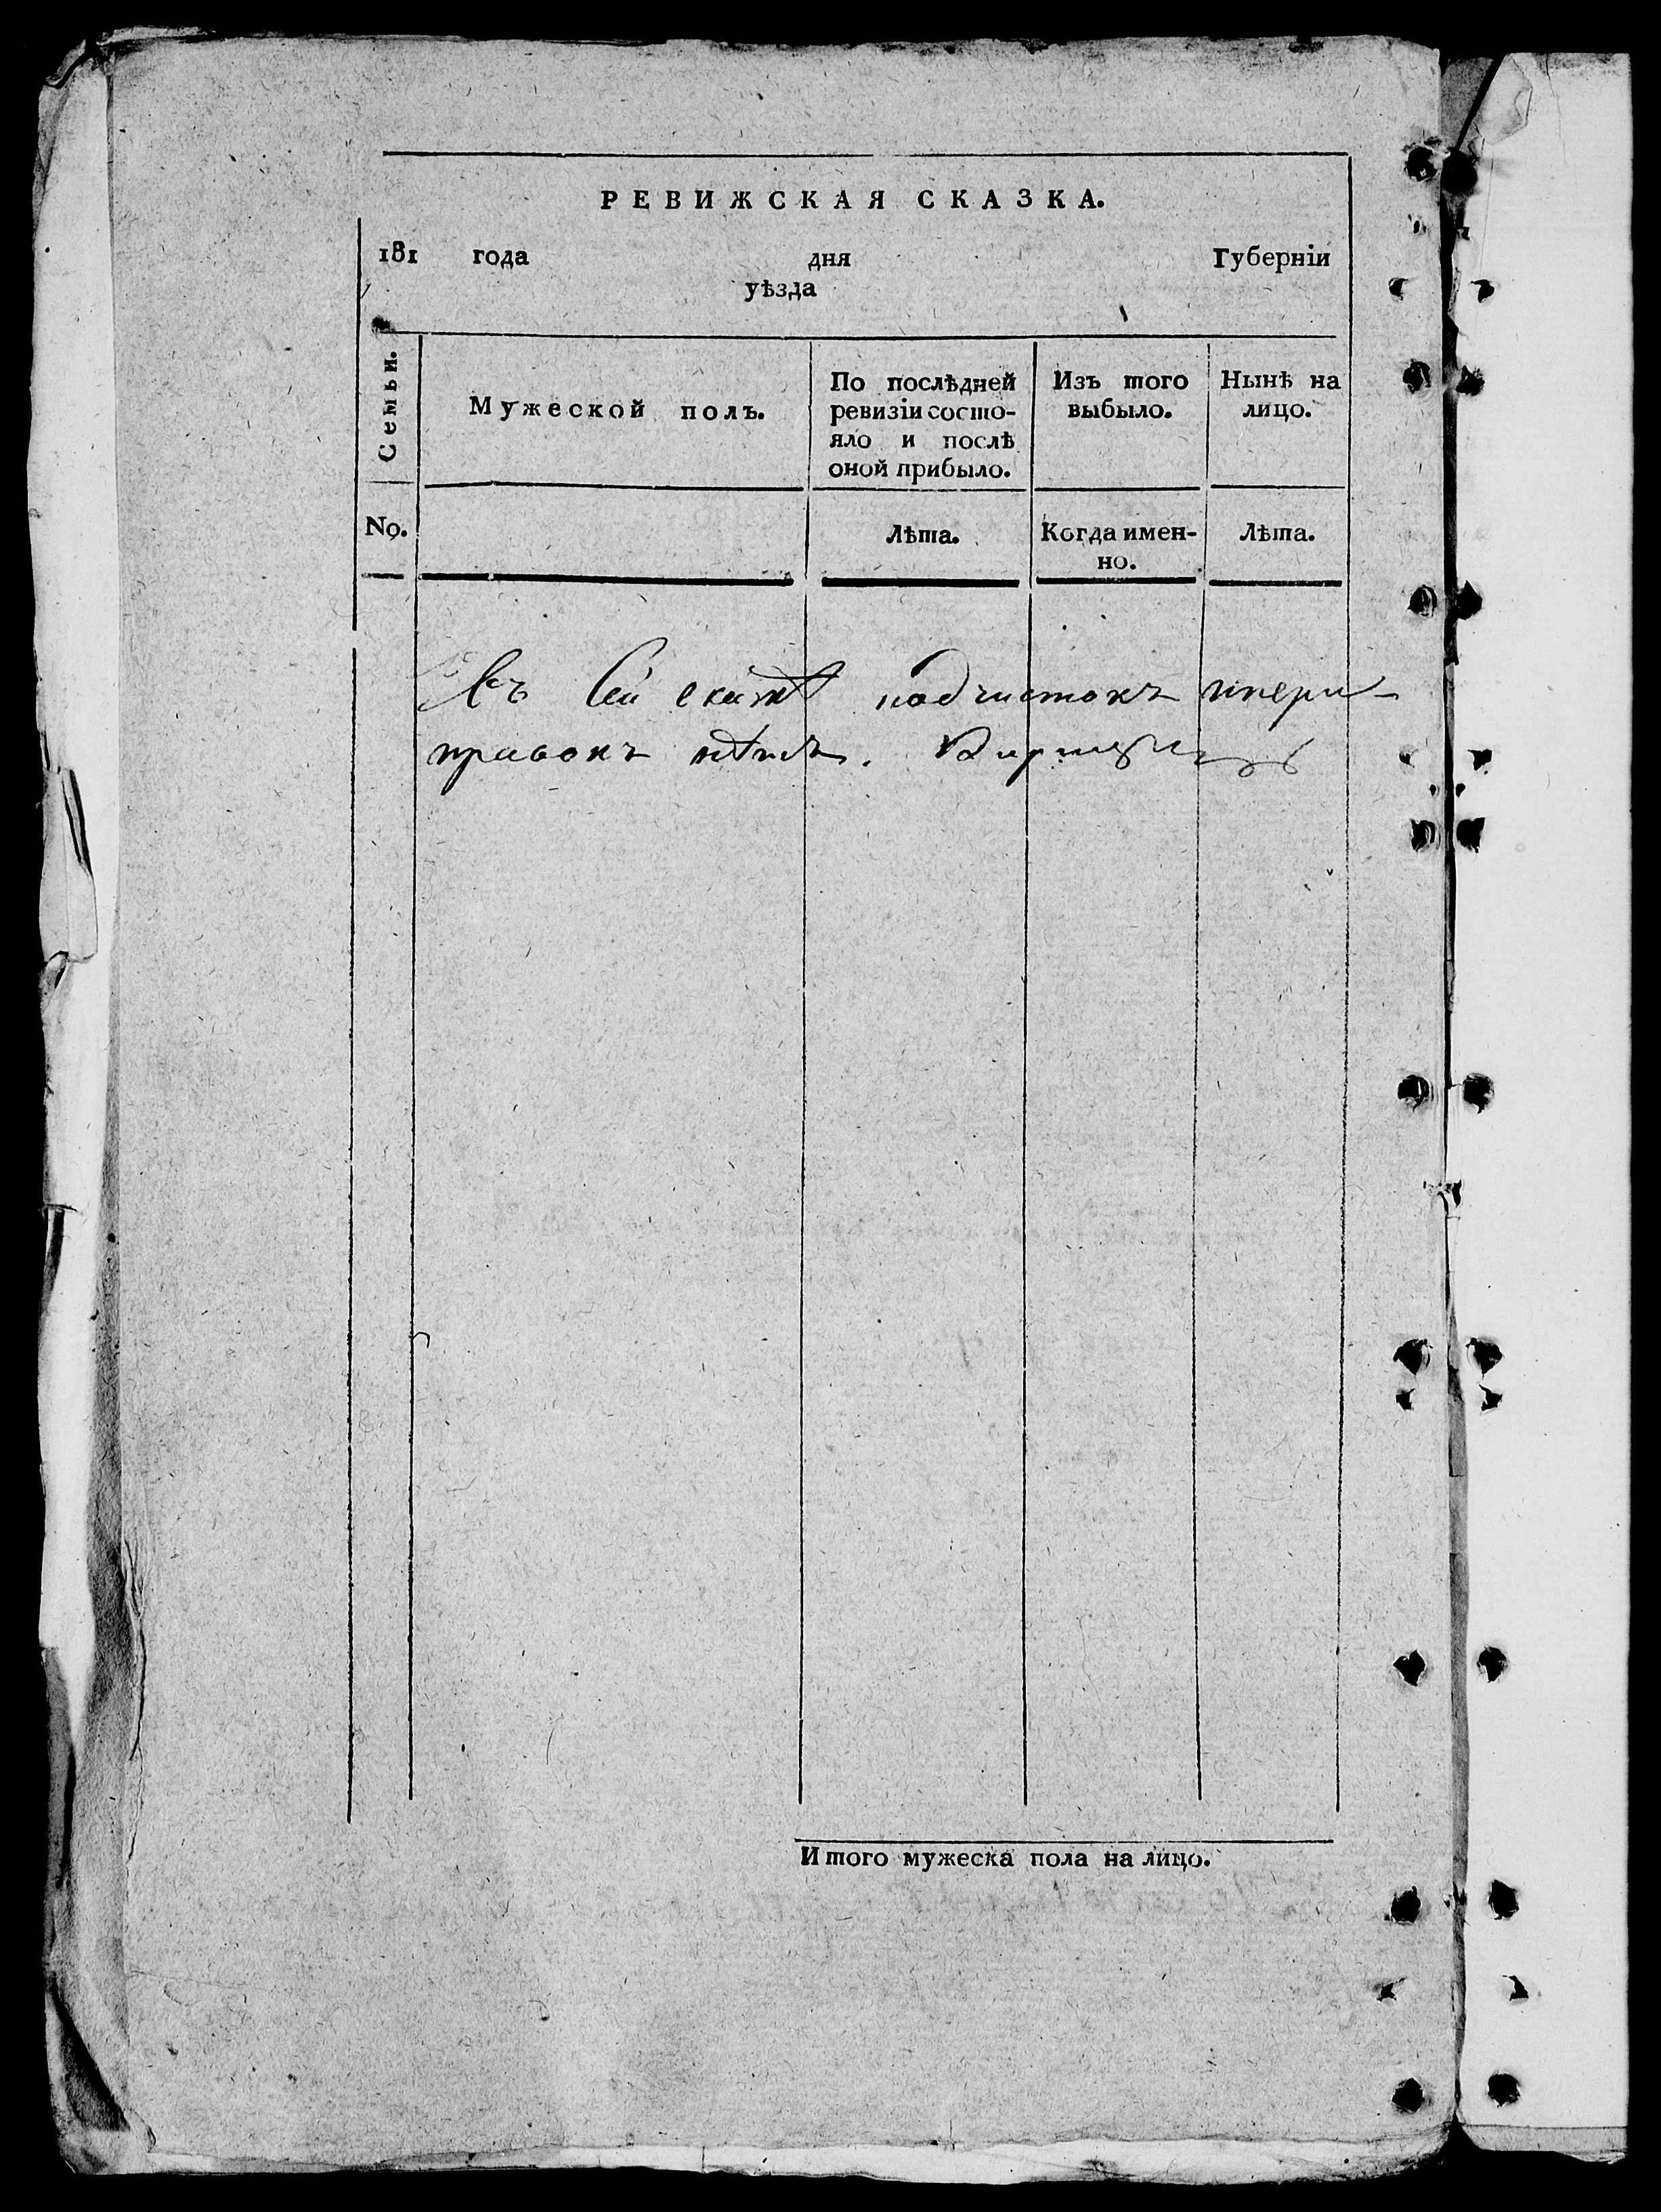 РЕВИЖСКАЯ СКАЗКА.
181 года дня Губерніи
уѣзда
Семьи.
Мужеской полъ.
По послѣдней
ревизіи состо-
яло и послѣ
оной прибыло.
Изъ того
выбыло.
Нынѣ на
лицо.
No.
Лѣта.
Когда имен-
но.
Лѣта.
Въ сей скаскѣ подчистокъ ипери
правокъ нѣтъ.
Итого мужеска пола на лицо.